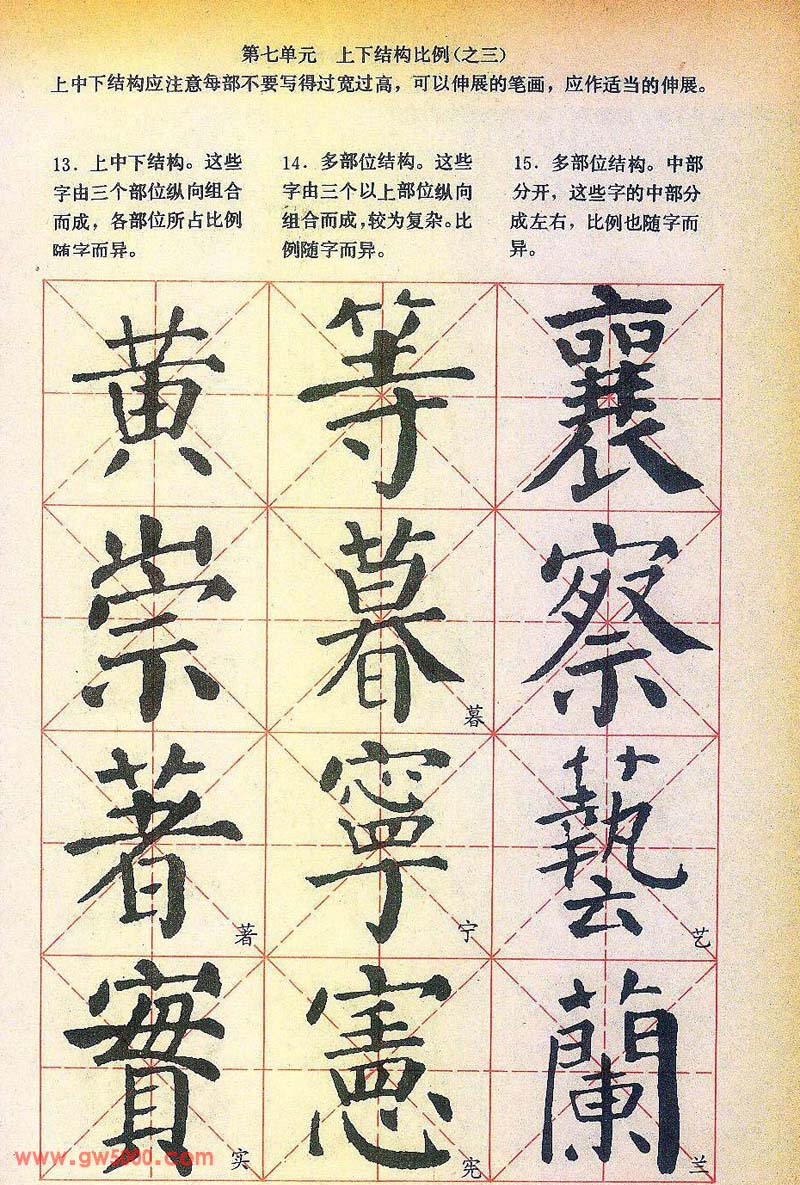 第七单元 上下结构比例(之三)
上中下结构应注意每部不要写得过宽过高，可以伸展的笔画，应作适当的伸展。
13．上中下结构。这些
字由三个部位纵向组合
而成，各部位所占比例
随字而异。
14．多部位结构。这些
字由三个以上部位纵向
组合而成，较为复杂。比
例随字而异。
15．多部位结构。中部
分开，这些字的中部分
成左右，比例也随字而
异。
黄 等 襄
崇 暮 察
暮
著 寧 藝
著 宁 艺
實 憲 蘭
实 宪 兰
www.gw5000.com